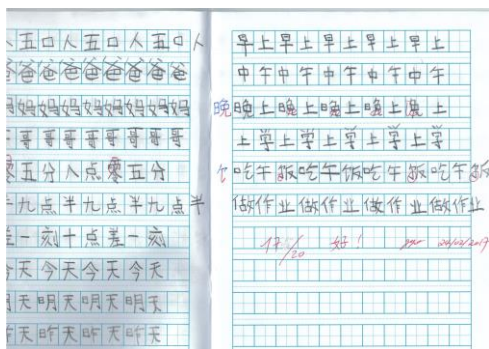 人五口人五口人五口人
爸爸爸爸爸爸爸爸
妈妈妈妈妈妈妈妈
哥哥哥哥哥哥哥
零五分八点零五分
九点半九点半九点半
差一刻十点差一刻
今天今天今天今天
天明天明天明天
昨天昨天昨天昨天
早上早上早上早上
中午中午中午中午
晚晚上晚上晚上晚上
上学上学上学上学
吃午饭吃午饭吃午饭吃午饭
做作业做作业做作业做作业
17/20 好! 24/02/2017